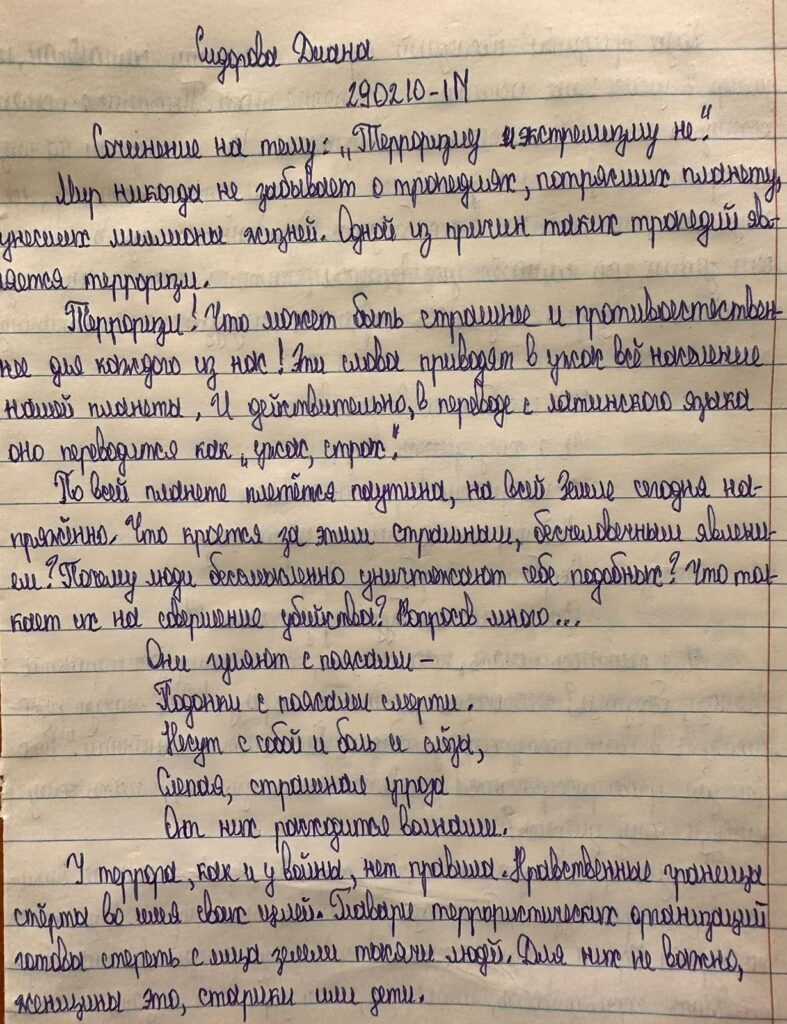 Сидорова Диана
290210-1М
Сочинение на тему: „Терроризму и экстремизму не".
Мир никогда не забывает о трагедиях, потрясших планету,
унесших миллионы жизней. Одной из причин таких трагедий яв-
ляется терроризм.
Терроризм! Что может быть страшнее и противоестествен-
нее для каждого из нас! Эти слова приводят в ужас всё население
нашей планеты. И действительно, в переводе с латинского языка
оно переводится как „ужас, страх".
По всей планете плетётся паутина, на всей Земле сегодня на-
пряжённо. Что кроется за этим страшным, бесчеловечным явлени-
ем? Почему люди бессмысленно уничтожают себе подобных? Что тол-
кает их на совершение убийства? Вопросов много...
Они гуляют с поясами –
Подонки с поясами смерти.
Несут с собой и боль и слёзы,
Слепая, страшная угроза
От них расходится волнами.
У террора, как и у войны, нет правила. Нравственные границы
стёрты во имя своих целей. Главари террористических организаций
готовы стереть с лица земли тысячи людей. Для них не важно,
женщины это, старики или дети.